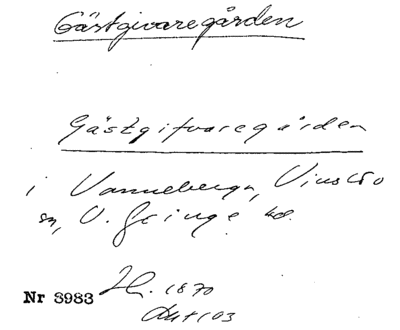 Gästgivaregården
Gästgifvaregården
i Vanneberga, Vinslöv
sn, V. Göinge hd.
1870
Nr 8983